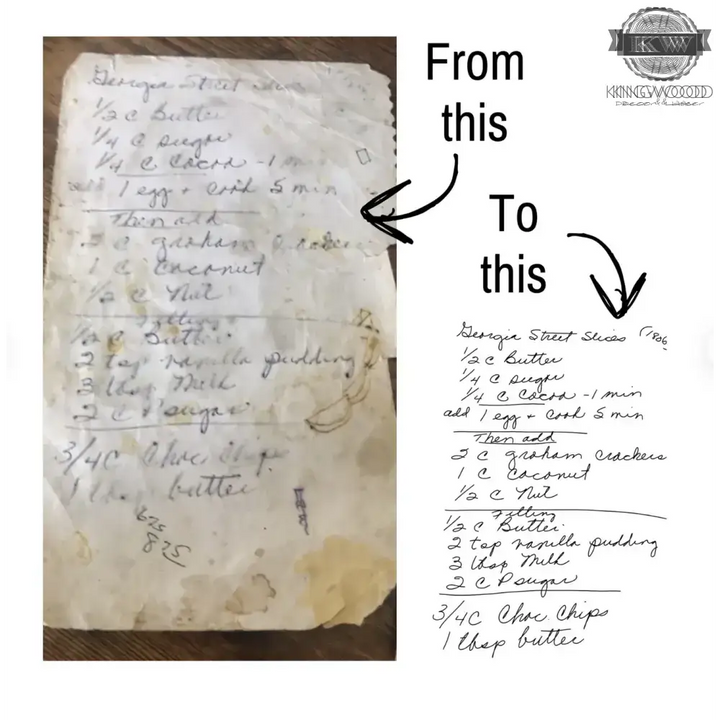 From
this
To
this
KW
KINGWOOD
Georgia Street
1/2 C Butter
1/4 C sugar
1/4 C Cocoa - 1 m
add 1 egg + cook 5 min
Then add
2 C graham crackers
1 C Coconut
1/2 C Nut
Filling
1/2 C Butter
2 tsp vanilla pudding
3 tbsp Milk
2 C P sugar
3/4C Choc Chips
1 tbsp butter
675
875
Georgia Street Slices
1/2 C Butter
1/4 C sugar
1/4 C Cocoa - 1 min
add 1 egg + cook 5 min
Then add
2 C graham crackers
1 C Coconut
1/2 C Nut
Filling
1/2 C Butter
2 tsp vanilla pudding
3 tbsp Milk
2 C P sugar
3/4C Choc Chips
1 tbsp butter